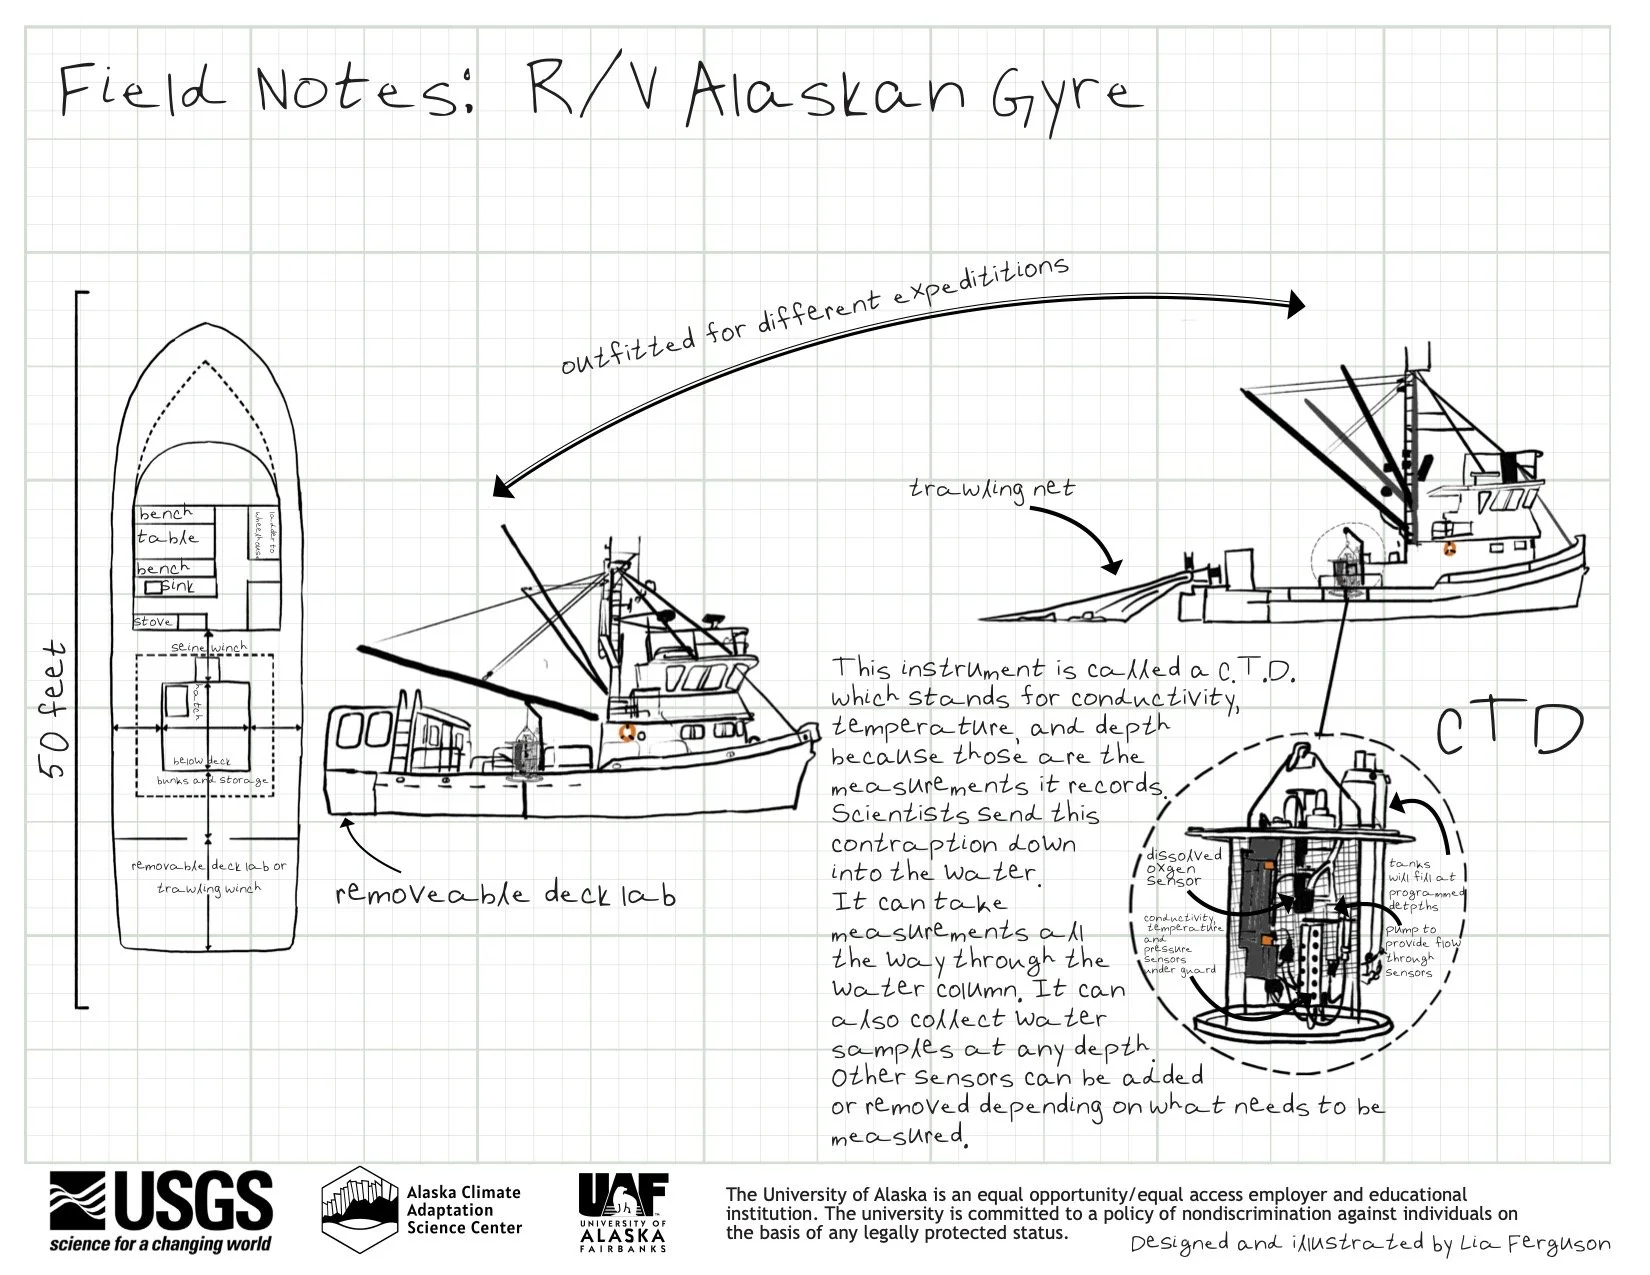 Field Notes: R/V Alaskan Gyre
outfitted for different expedititions
50 feet
bench
table
bench
sink
stove
ladder to
wheelhouse
seine winch
hatch
below deck
bunks and storage
removable deck lab or
trawling winch
removeable deck lab
trawling net
This instrument is called a C.T.D.
which stands for conductivity,
temperature, and depth
because those are the
measurements it records.
Scientists send this
contraption down
into the water.
It can take
measurements all
the way through the
water column. It can
also collect water
samples at any depth.
Other sensors can be added
or removed depending on what needs to be
measured.
CTD
dissolved
oxgen
sensor
conductivity,
temperature
and
pressure
sensors
under guard
tanks
will fill at
programmed
detpths
pump to
provide flow
through
sensors
USGS
science for a changing world
Alaska Climate
Adaptation
Science Center
UAF
UNIVERSITY OF
ALASKA
FAIRBANKS
The University of Alaska is an equal opportunity/equal access employer and educational
institution. The university is committed to a policy of nondiscrimination against individuals on
the basis of any legally protected status.
Designed and illustrated by Lia Ferguson